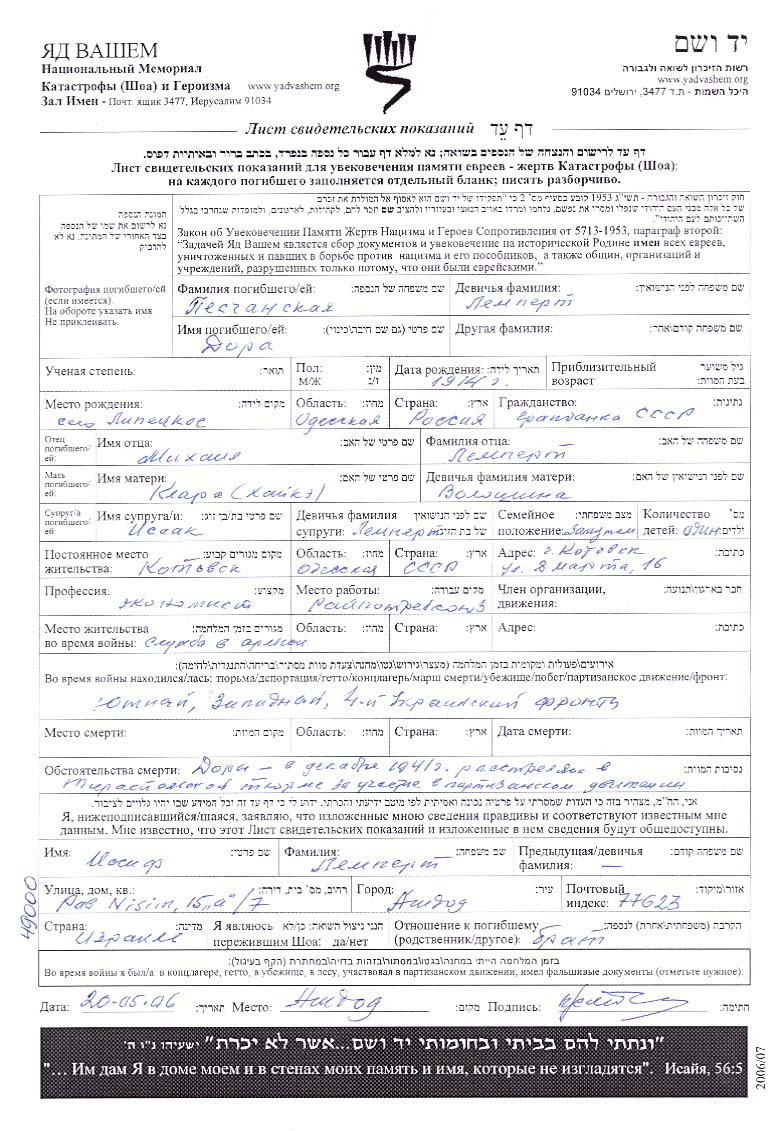 ЯД ВАШЕМ
Национальный Мемориал
Катастрофы (Шоа) и Героизма www.yadvashem.org
Зал Имен - Почт. ящик 3477, Иерусалим 91034
יד ושם
רשות הזיכרון לשואה ולגבורה
www.yadvashem.org
היכל השמות - ת.ד 3477, ירושלים 91034
Лист свидетельских показаний דף עֵד
דף עד לרישום והנצחה של הנספים בשואה; נא למלא דף עבור כל נספה בנפרד, בכתב ברור ובאותיות דפוס.
Лист свидетельских показаний для увековечения памяти евреев - жертв Катастрофы (Шоа);
на каждого погибшего заполняется отдельный бланк; писать разборчиво.
תמונת הנספה
נא לרשום את שמו של הנספה
בצד האחורי של התמונה. נא לא
להדביק
Фотография погибшего/ей
(если имеется).
На обороте указать имя.
Не приклеивать.
חוק זיכרון השואה והגבורה - תשי"ג 1953 קובע בסעיף מס' 2 כי "תפקידו של יד ושם הוא לאסוף אל המולדת את זכרם
של כל אלה מבני העם היהודי שנפלו ומסרו את נפשם, נלחמו ומרדו באויב הנאצי ובעוזריו ולהציב שם וזכר להם, לקהילות, לארגונים, ולמוסדות שנחרבו בגלל
השתייכותם לעם היהודי".
Закон об Увековечении Памяти Жертв Нацизма и Героев Сопротивления от 5713-1953, параграф второй:
“Задачей Яд Вашем является сбор документов и увековечение на исторической Родине имен всех евреев,
уничтоженных и павших в борьбе против нацизма и его пособников, а также общин, организаций и
учреждений, разрушенных только потому, что они были еврейскими.“
Фамилия погибшего/ей: שם משפחה של הנספה: Девичья фамилия: שם משפחה לפני הנישואין:
Песчанская Лемперт
Имя погибшего/ей: שם פרטי (גם שם חיבה\כינוי): Другая фамилия: שם משפחה קודם\אחר:
Дора
Ученая степень: תואר: Пол: מין: Дата рождения: תאריך לידה: Приблизительный גיל משוער
М/Ж ז/נ 1914 г. возраст בעת המוות:
Место рождения: מקום לידה: Область: מחוז: Страна: ארץ: Гражданство: נתינות:
село Липецкое Одесская Россия гражданка СССР
Отец погибшего/ей: Имя отца: שם פרטי של האב: Фамилия отца: שם משפחה של האב:
Михаил Лемперт
Мать погибшего/ей: Имя матери: שם פרטי של האם: Девичья фамилия матери: שם לפני הנישואין של האם:
Клара (Хайкэ) Волошина
Супруг/а погибшего/ей: Имя супруга/и: שם פרטי בת/בן זוג: Девичья фамилия שם לפני הנישואין Семейное מצב משפחתי: Количество מס'
Исаак супруги: Лемперт של בת הזוג: положение: Замужем детей: один ילדים:
Постоянное место מקום מגורים קבוע: Область: מחוז: Страна: ארץ: Адрес: г. Котовск כתובת:
жительства: Котовск Одесская СССР ул. 8 марта, 16
Профессия: מקצוע: Место работы: מקום עבודה: Член организации, חבר בארגון\תנועה:
экономист Райпотребсоюз движения:
Место жительства מגורים בזמן המלחמה: Область: מחוז: Страна: ארץ: Адрес: כתובת:
во время войны: служба в армии
אירועים\פעולות ומקומות בזמן המלחמה (מעצר\גירוש\גטו\מחנה\צעדת מוות\מסתור\בריחה\התנגדות\לחימה):
Во время войны находился/лась: тюрьма/депортация/гетто/концлагерь/марш смерти/убежище/побег/партизанское движение/фронт:
Южный, Западный, 4-й Украинский фронты
Место смерти: מקום המוות: Область: מחוז: Страна: ארץ: Дата смерти: תאריך המוות:
Обстоятельства смерти: Доры - в декабре 1941 г. расстреляна в נסיבות המוות:
Тираспольской тюрьме за участие в партизанском движении
אני, הח"מ, מצהיר בזה כי העדות שמסרתי על פרטיה נכונה ואמיתית לפי מיטב ידיעתי והכרתי. ידוע לי כי דף עד זה וכל המידע שבו יהיו גלויים לציבור.
Я, нижеподписавшийся/шаяся, заявляю, что изложенные мною сведения правдивы и соответствуют известным мне
данным. Мне известно, что этот Лист свидетельских показаний и изложенные в нем сведения будут общедоступны.
Имя: שם פרטי: Фамилия: שם משפחה: Предыдущая/девичья שם משפחה קודם:
Иосиф Лемперт фамилия: —
Улица, дом, кв.: רחוב, מס' בית, דירה: Город: עיר: Почтовый אזור\מיקוד:
Рав Nisim, 15„а“/7 Ашдод индекс: 77623
Страна: מדינה: Я являюсь הנני ניצול השואה: כן/לא Отношение к погибшему הקרבה (משפחתית\אחרת) לנספה:
Израиль пережившим Шоа: да/нет (родственник/другое): брат
בזמן המלחמה הייתי במחנה\בגטו\במסתור\בזהות בדויה\במחתרת (הקף בעיגול):
Во время войны я был/а: в концлагере, гетто, в убежище, в лесу, участвовал в партизанском движении, имел фальшивые документы (отметьте нужное):
Дата: 20-05-06 תאריך: Место: Ашдод מקום: Подпись: חתימה:
"ונתתי להם בביתי ובחומותי יד ושם...אשר לא יכרת" ישעיהו נ"ו ה'
"… Им дам Я в доме моем и в стенах моих память и имя, которые не изгладятся". Исайя, 56:5
49000
2006/07